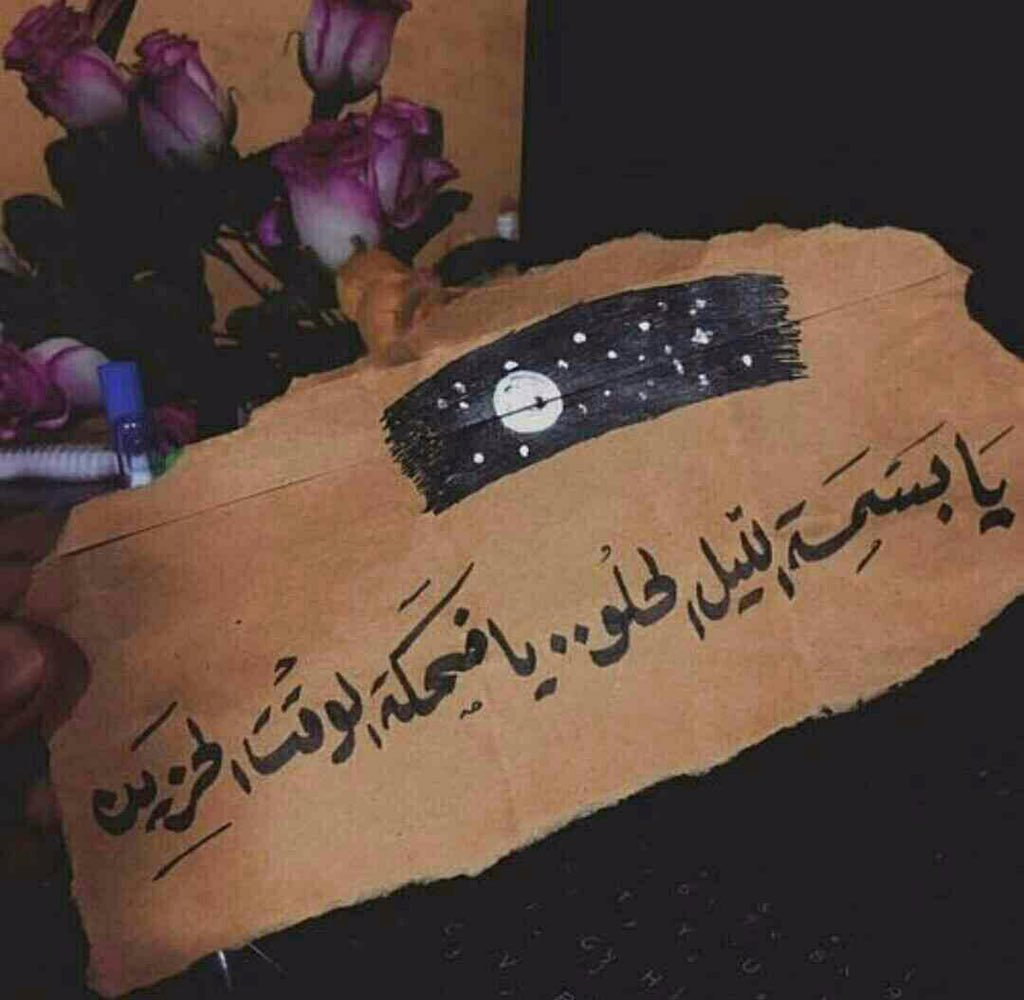 يَا بَسَمِة اللّيل الحلُو .. يا ضَحكَة الوقتُ الحزِين